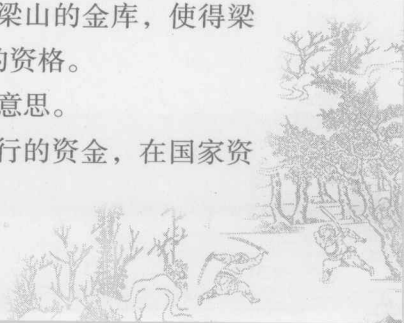 梁山的金库，使得梁
的资格。
意思。
行的资金，在国家资